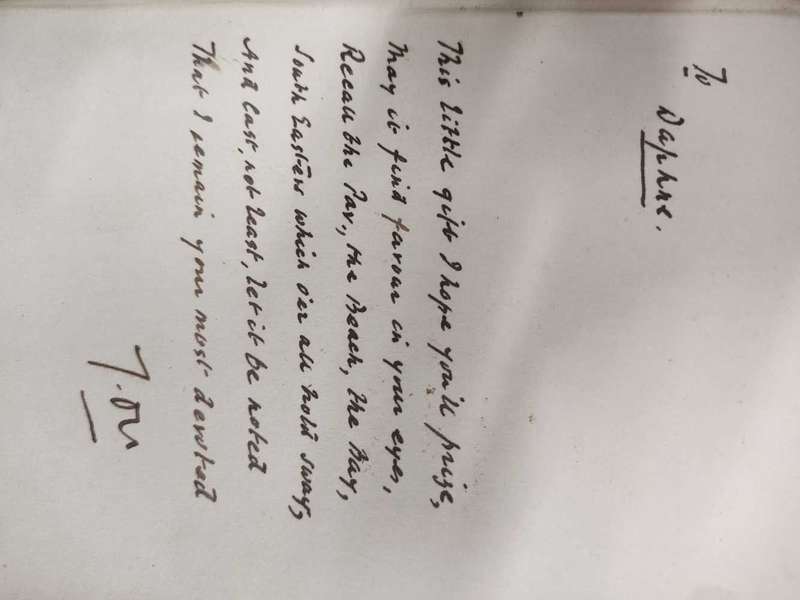 To
Daphne.
This little gift I hope you'll prize,
May it find favour in your eyes,
Recall the Pav., the Beach, the Bay,
South Easters which o'er all hold sway,
And last, not least, let it be noted
That I remain your most devoted